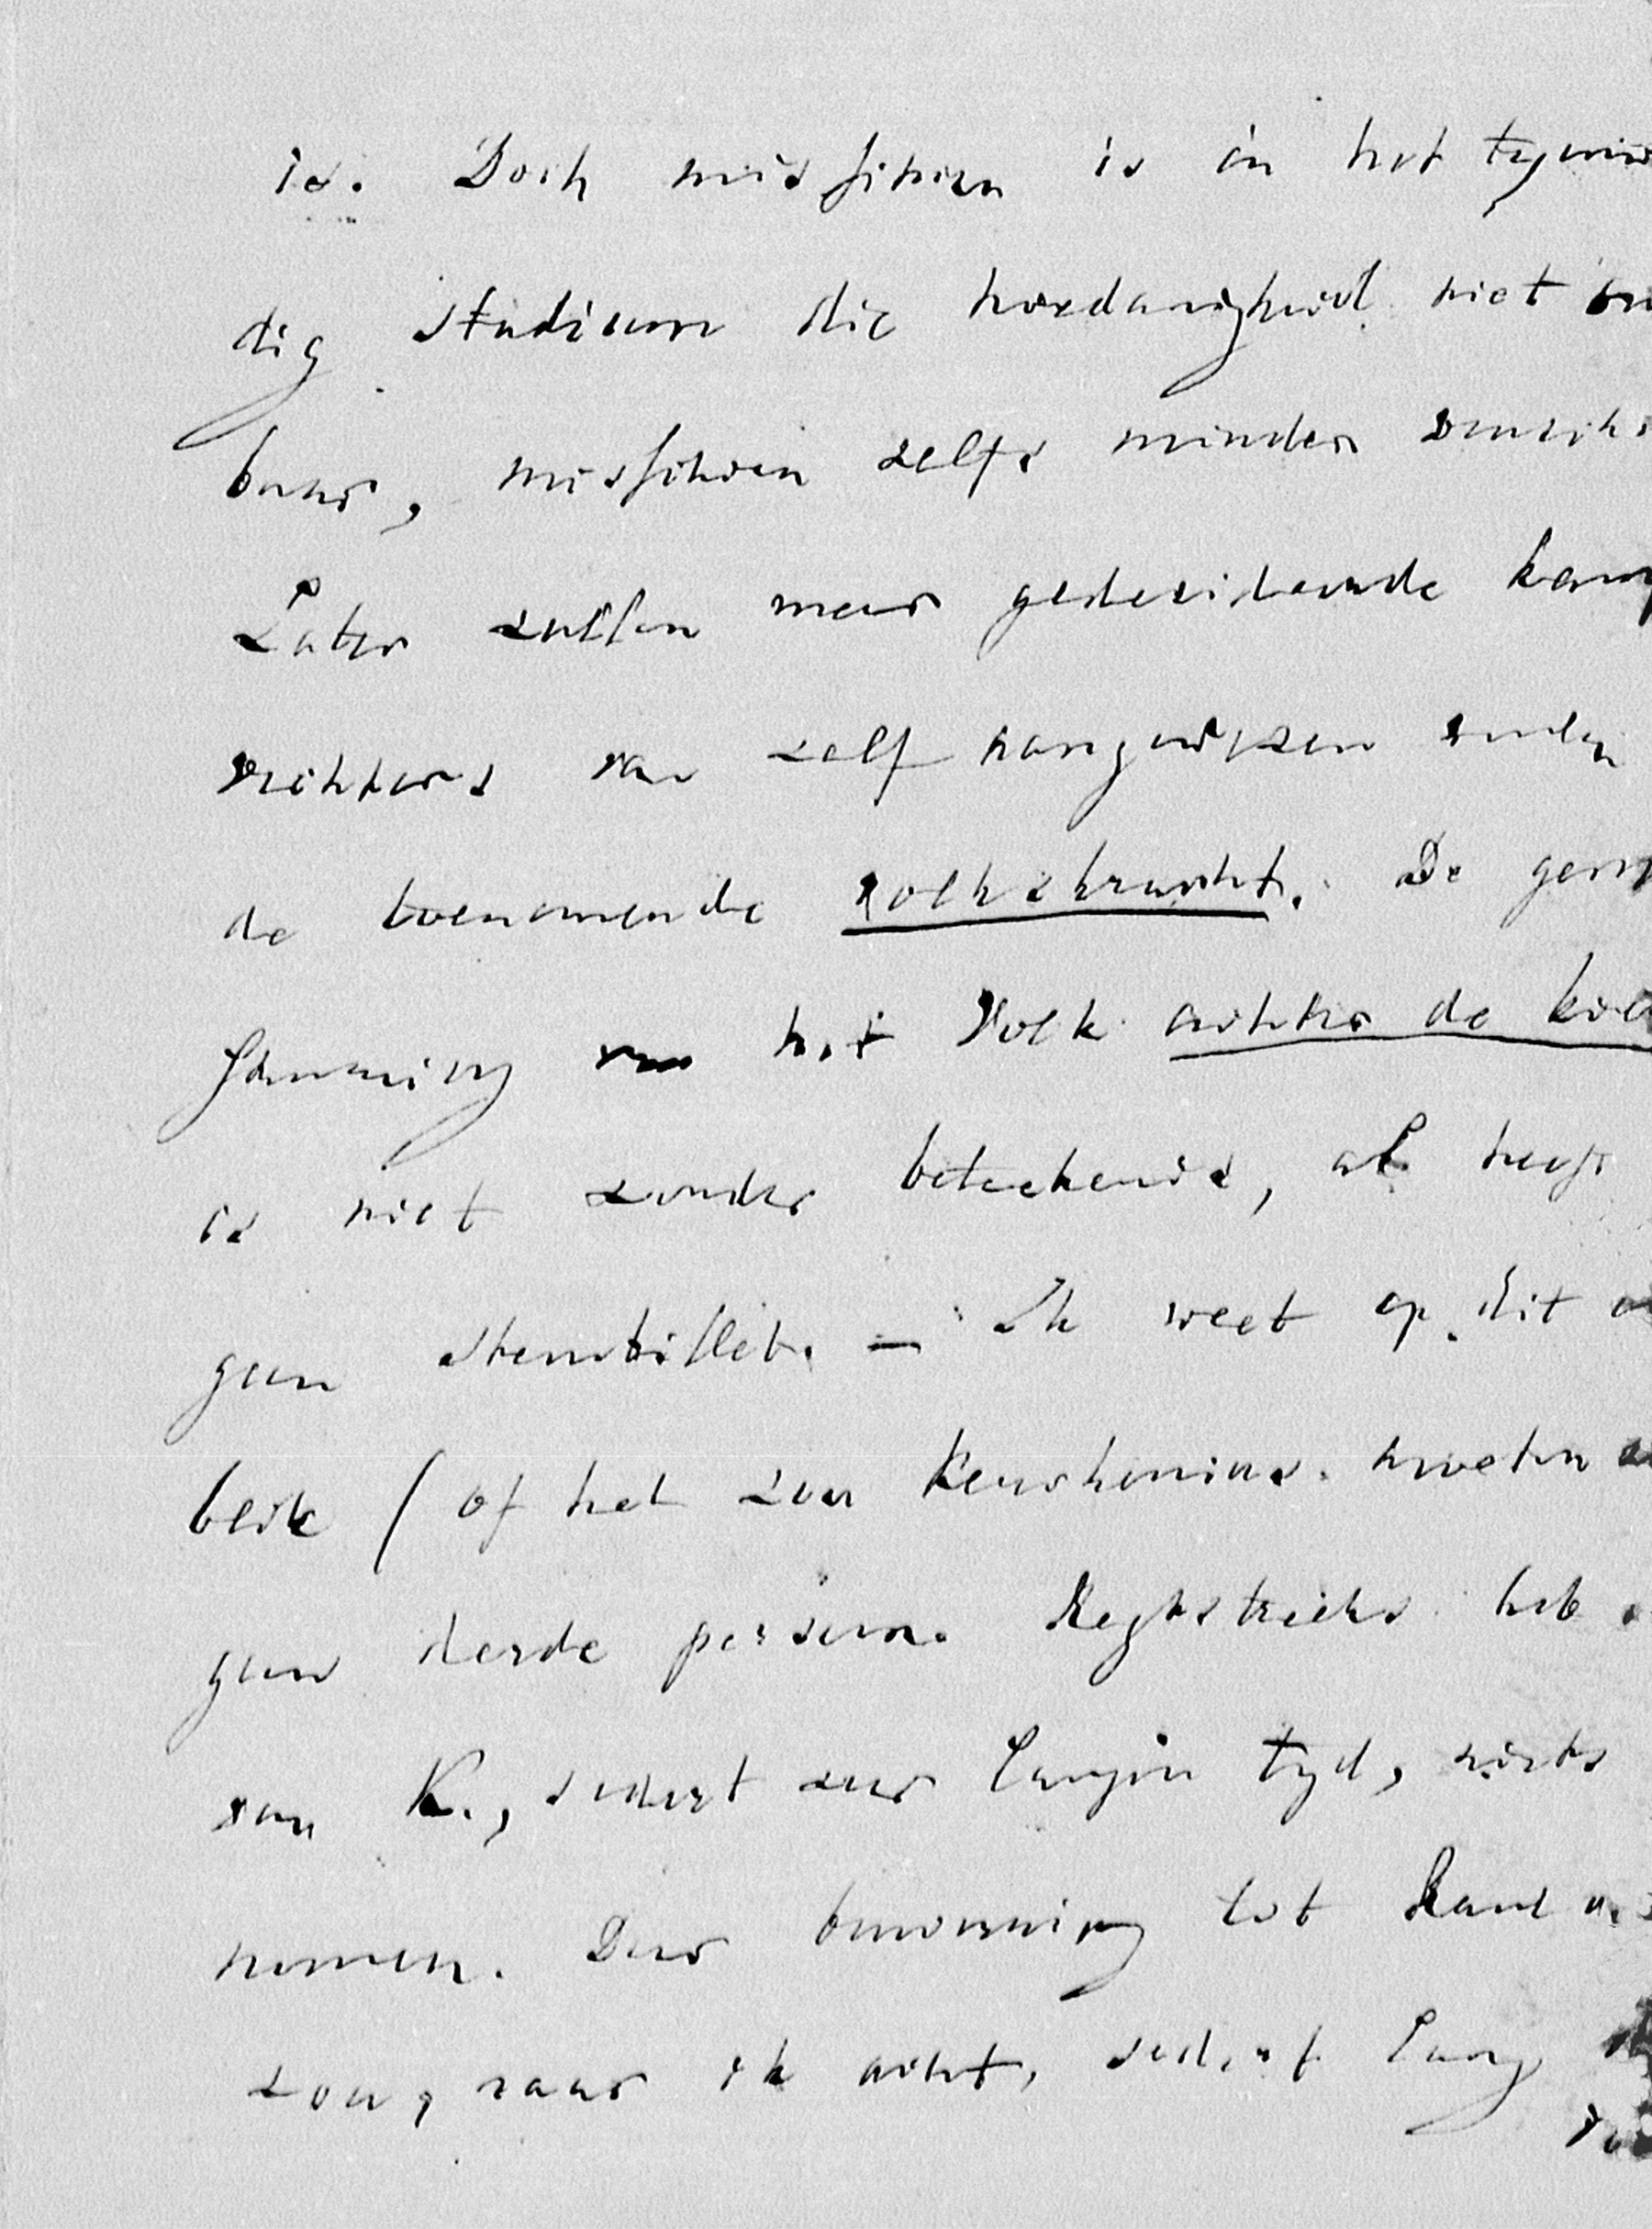 is. Doch misschien is in het tegenwoor
dig stadium die hoedanigheid niet on
baar, misschien zelfs minder
Later zullen meer gedecideerde kamp
vechters van zelf aangewezen
de toenemende volkskracht. De
stemming van het Volk achter de kie
is niet zonder beteekenis, al heeft
geen stembillet. — Ik weet op dit
blik (of het zou Keuchenius moeten
geen derde persoon. Regtstreeks heb
van K., sedert zeer langen tyd, niets
nomen. Deze benoeming tot
zou, naar ik acht, sedert lang